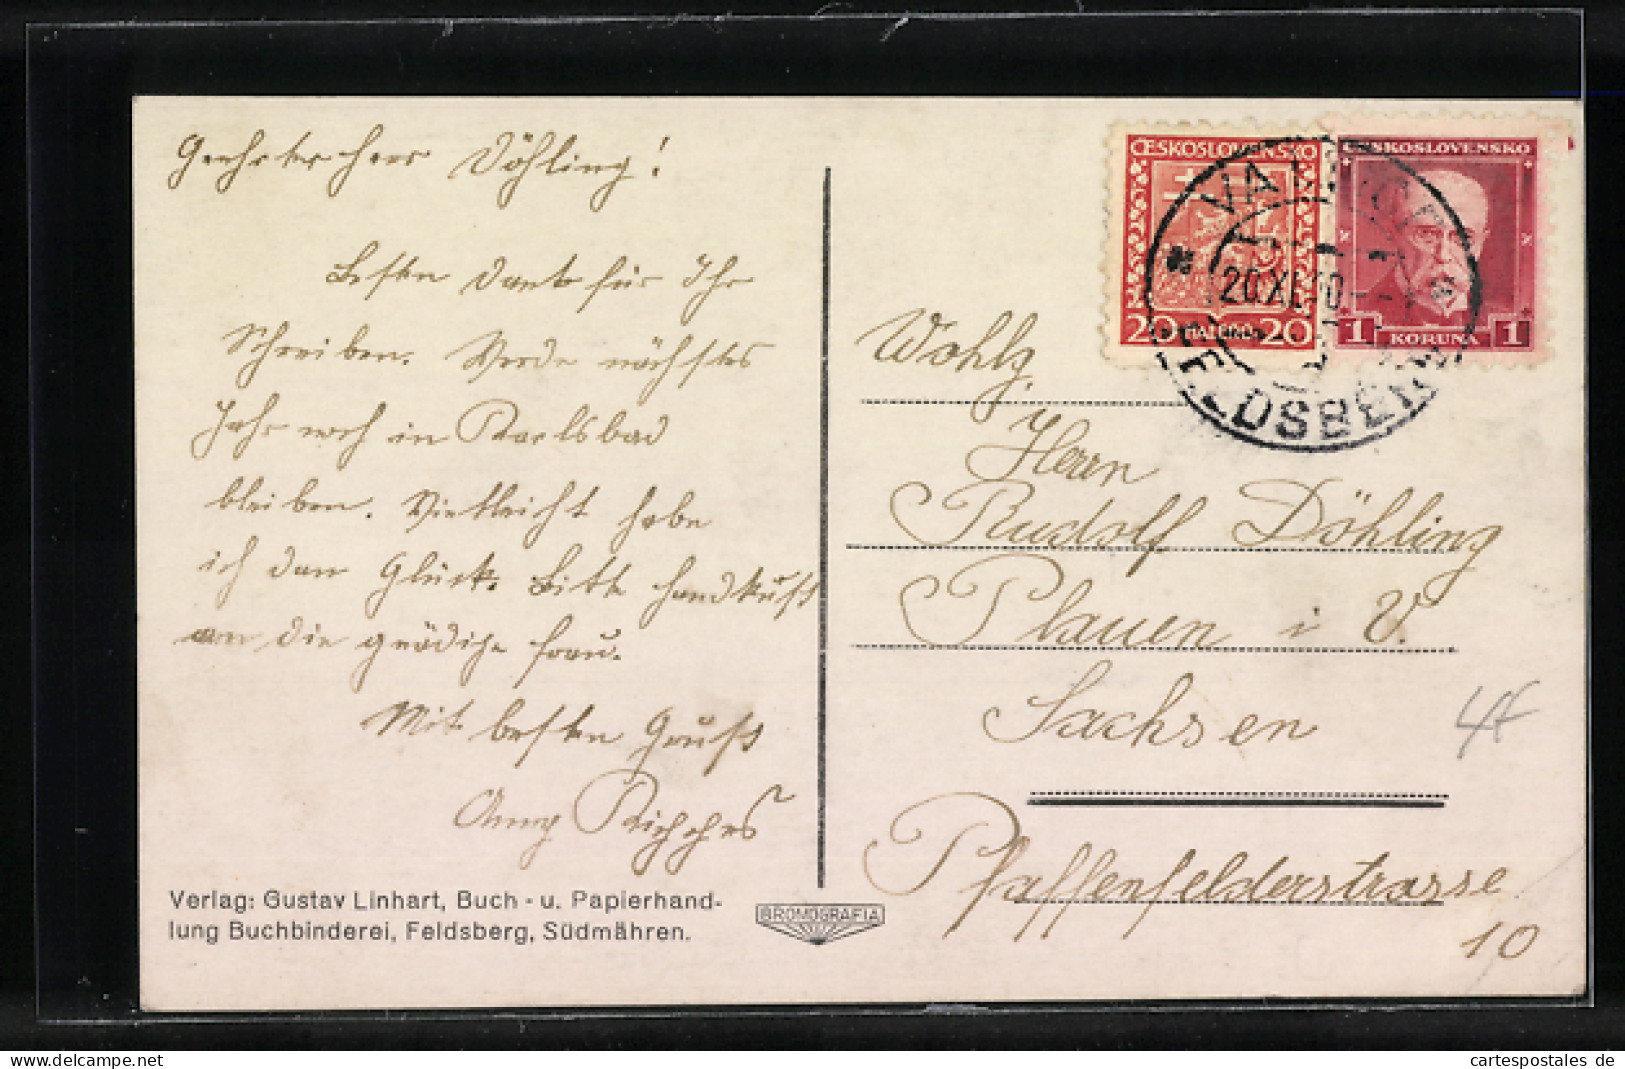 Geehrter Herr Döhling!
Besten Dank für Ihr
Schreiben. Werde nächstes
Jahr noch in Karlsbad
bleiben. Vielleicht habe
ich dan Glück. Bitte Handkuß
an die gnädige Frau.
Mit besten Gruß
Anny
Verlag: Gustav Linhart, Buch- u. Papierhand-
lung Buchbinderei, Feldsberg, Südmähren.
BROMOGRAFIA
ČESKOSLOVENSKO
20 HALÉŘŮ 20
ČESKOSLOVENSKO
1 KORUNA 1
VALTICE
20.XI.30
FELDSBERG
Wohlg.
Herrn
Rudolf Döhling
Plauen i V.
Sachsen
Pfaffenfelderstrasse
10
cartespostales de